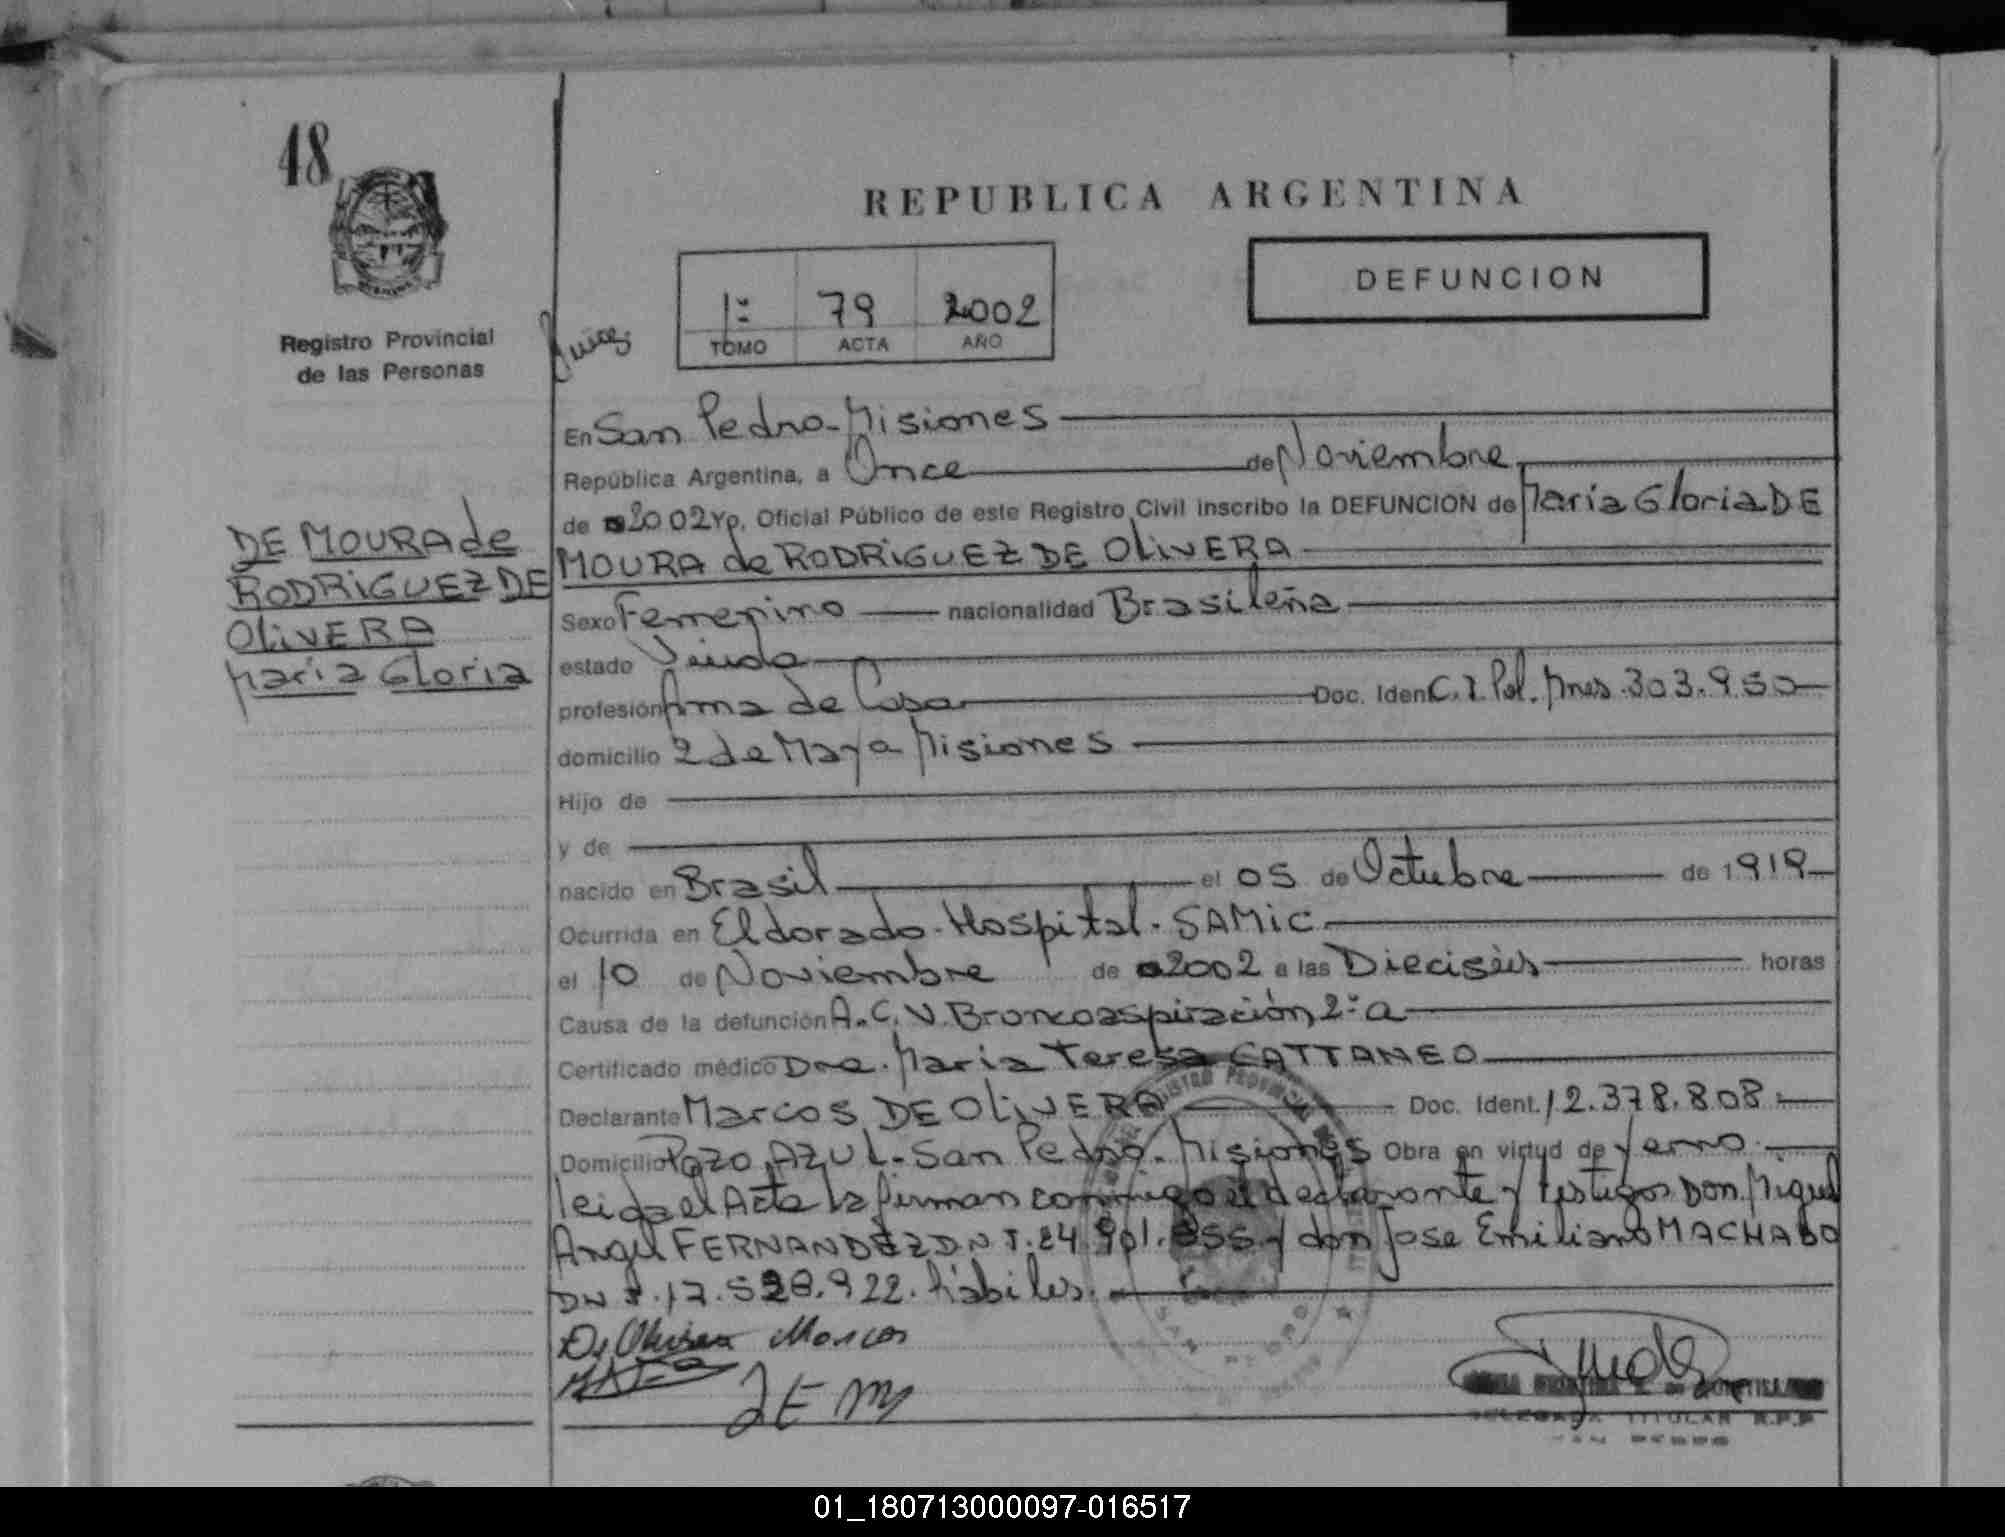 48
REPUBLICA ARGENTINA
1º 79 2002
TOMO ACTA AÑO
DEFUNCION
Registro Provincial
de las Personas
DE MOURA de
RODRIGUEZ DE
OLIVERA
Maria Gloria
En San Pedro - Misiones
República Argentina, a Once de Noviembre
de 2002 yo, Oficial Público de este Registro Civil inscribo la DEFUNCION de Maria Gloria DE
MOURA de RODRIGUEZ DE OLIVERA
Sexo Femenino nacionalidad Brasileña
estado Viuda
profesión Ama de Casa Doc. Iden C.I. Pol. Mnes. 303.950
domicilio 2 de Mayo Misiones
Hijo de
y de
nacido en Brasil el 05 de Octubre de 1919
Ocurrida en Eldorado - Hospital - SAMIC
el 10 de Noviembre de 2002 a las Dieciséis horas
Causa de la defunción A.C.V. Broncoaspiración 2º a
Certificado médico Dra. Maria Teresa CATTANEO
Declarante Marcos DE OLIVERA Doc. Ident. 12.378.808
Domicilio Pozo AZUL - San Pedro - Misiones Obra en virtud de yerno
leida el Acta la firman conmigo el declarante y testigos Don Miguel
Angel FERNANDEZ D.N.I. 24.901.856 y don Jose Emiliano MACHADO
DNI. 17.528.922. hábiles.
De Olivera Marcos
JEM
DELEGADA TITULAR R.P.P
SAN PEDRO
01_180713000097-016517